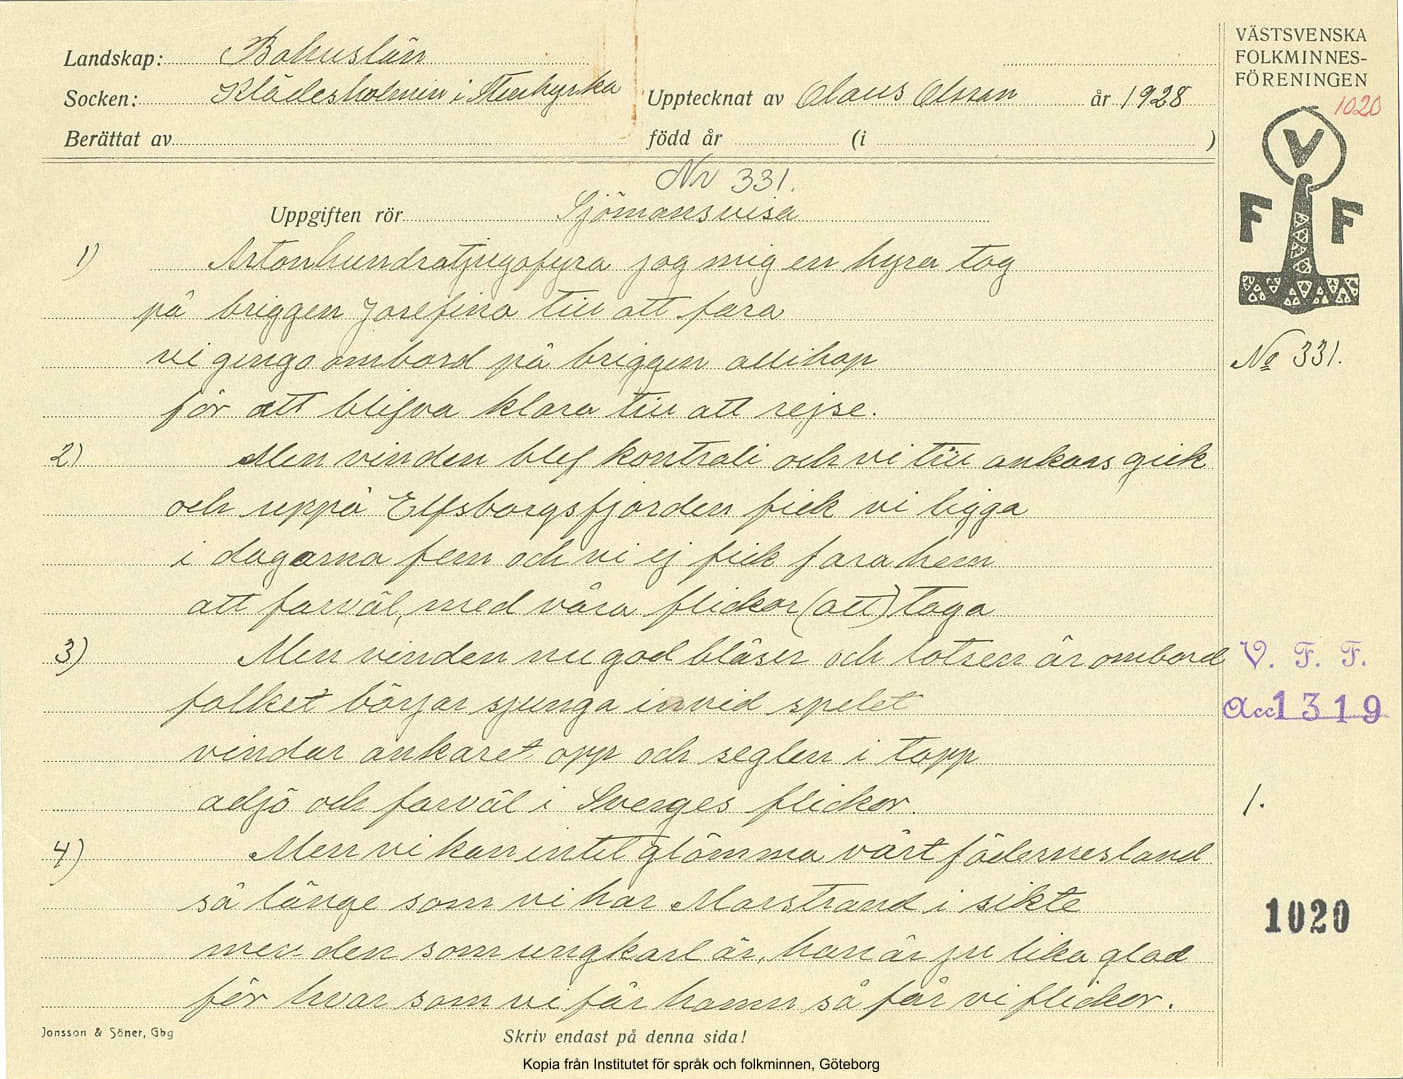 Landskap: Bohuslän
Socken: Klädesholmen i Stenkyrka Upptecknat av Olaus Olsson år 1928
Berättat av född år (i )
VÄSTSVENSKA
FOLKMINNES-
FÖRENINGEN
1020
V
F F
Nr 331.
Uppgiften rör Sjömansvisa
1) Artonhundratjugofyra jag mig en hyra tog
på briggen Josefina till att fara
vi gingo ombord på briggen allihop
för att blifva klara till att rejse.
No 331.
2) Men vinden blef kontrali och vi till ankars gick
och uppå Elfsborgsfjorden fick vi ligga
i dagarna fem och vi ej fick fara hem
att farväl, med våra flickor (att) taga
3) Men vinden nu god blåser och lotsen är ombord
folket börjar sjunga invid spelet
vindar ankaret opp och seglen i topp
adjö och farväl i Sverges flickor.
V. F. F.
Acc 1319
1.
4) Men vi kan intet glömma vårt fädernesland
så länge som vi har Marstrand i sikte
men den som ungkarl är, han är ju lika glad
för hvar som vi får hamn så får vi flickor.
1020
Jonsson & Söner, Gbg
Skriv endast på denna sida!
Kopia från Institutet för språk och folkminnen, Göteborg